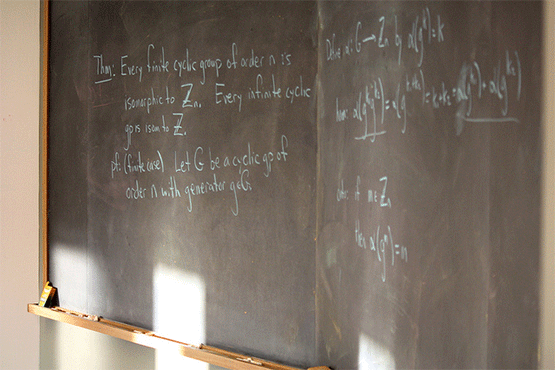 Thm: Every finite cyclic group of order n is
isomorphic to ℤn. Every infinite cyclic
gp is isom to ℤ.
pf: (finite case) Let G be a cyclic gp of
order n with generator g∈G
Define α: G → ℤn by α(g^k) = k
hom: α(g^k1 g^k2) = α(g^k1+k2) = k1+k2 = α(g^k1) + α(g^k2)
onto: if m ∈ ℤn
then α(g^m) = m